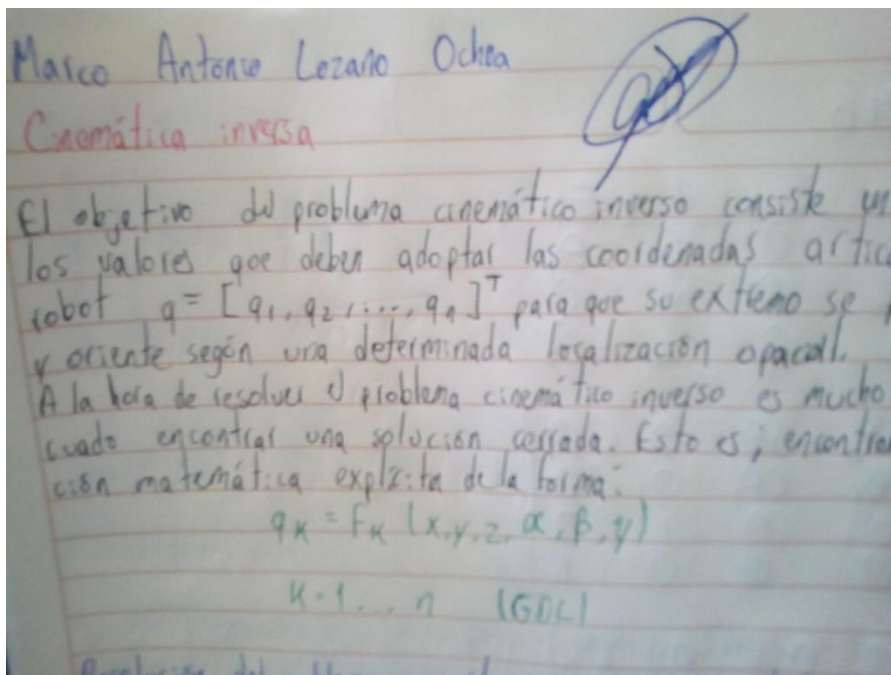 Marco Antonio Lozano Ochoa
Cinemática inversa
El objetivo del problema cinemático inverso consiste en
los valores que deben adoptar las coordenadas artic
robot q = [q₁, q₂, ..., qₙ]ᵀ para que su extremo se
y oriente según una determinada localización
A la hora de resolver el problema cinemático inverso es mucho
cuado encontrar una solución cerrada. Esto es; encontra
ción matemática explícita de la forma:
qₖ = Fₖ (x, y, z, α, β, γ)
K = 1 ... n (GDL)